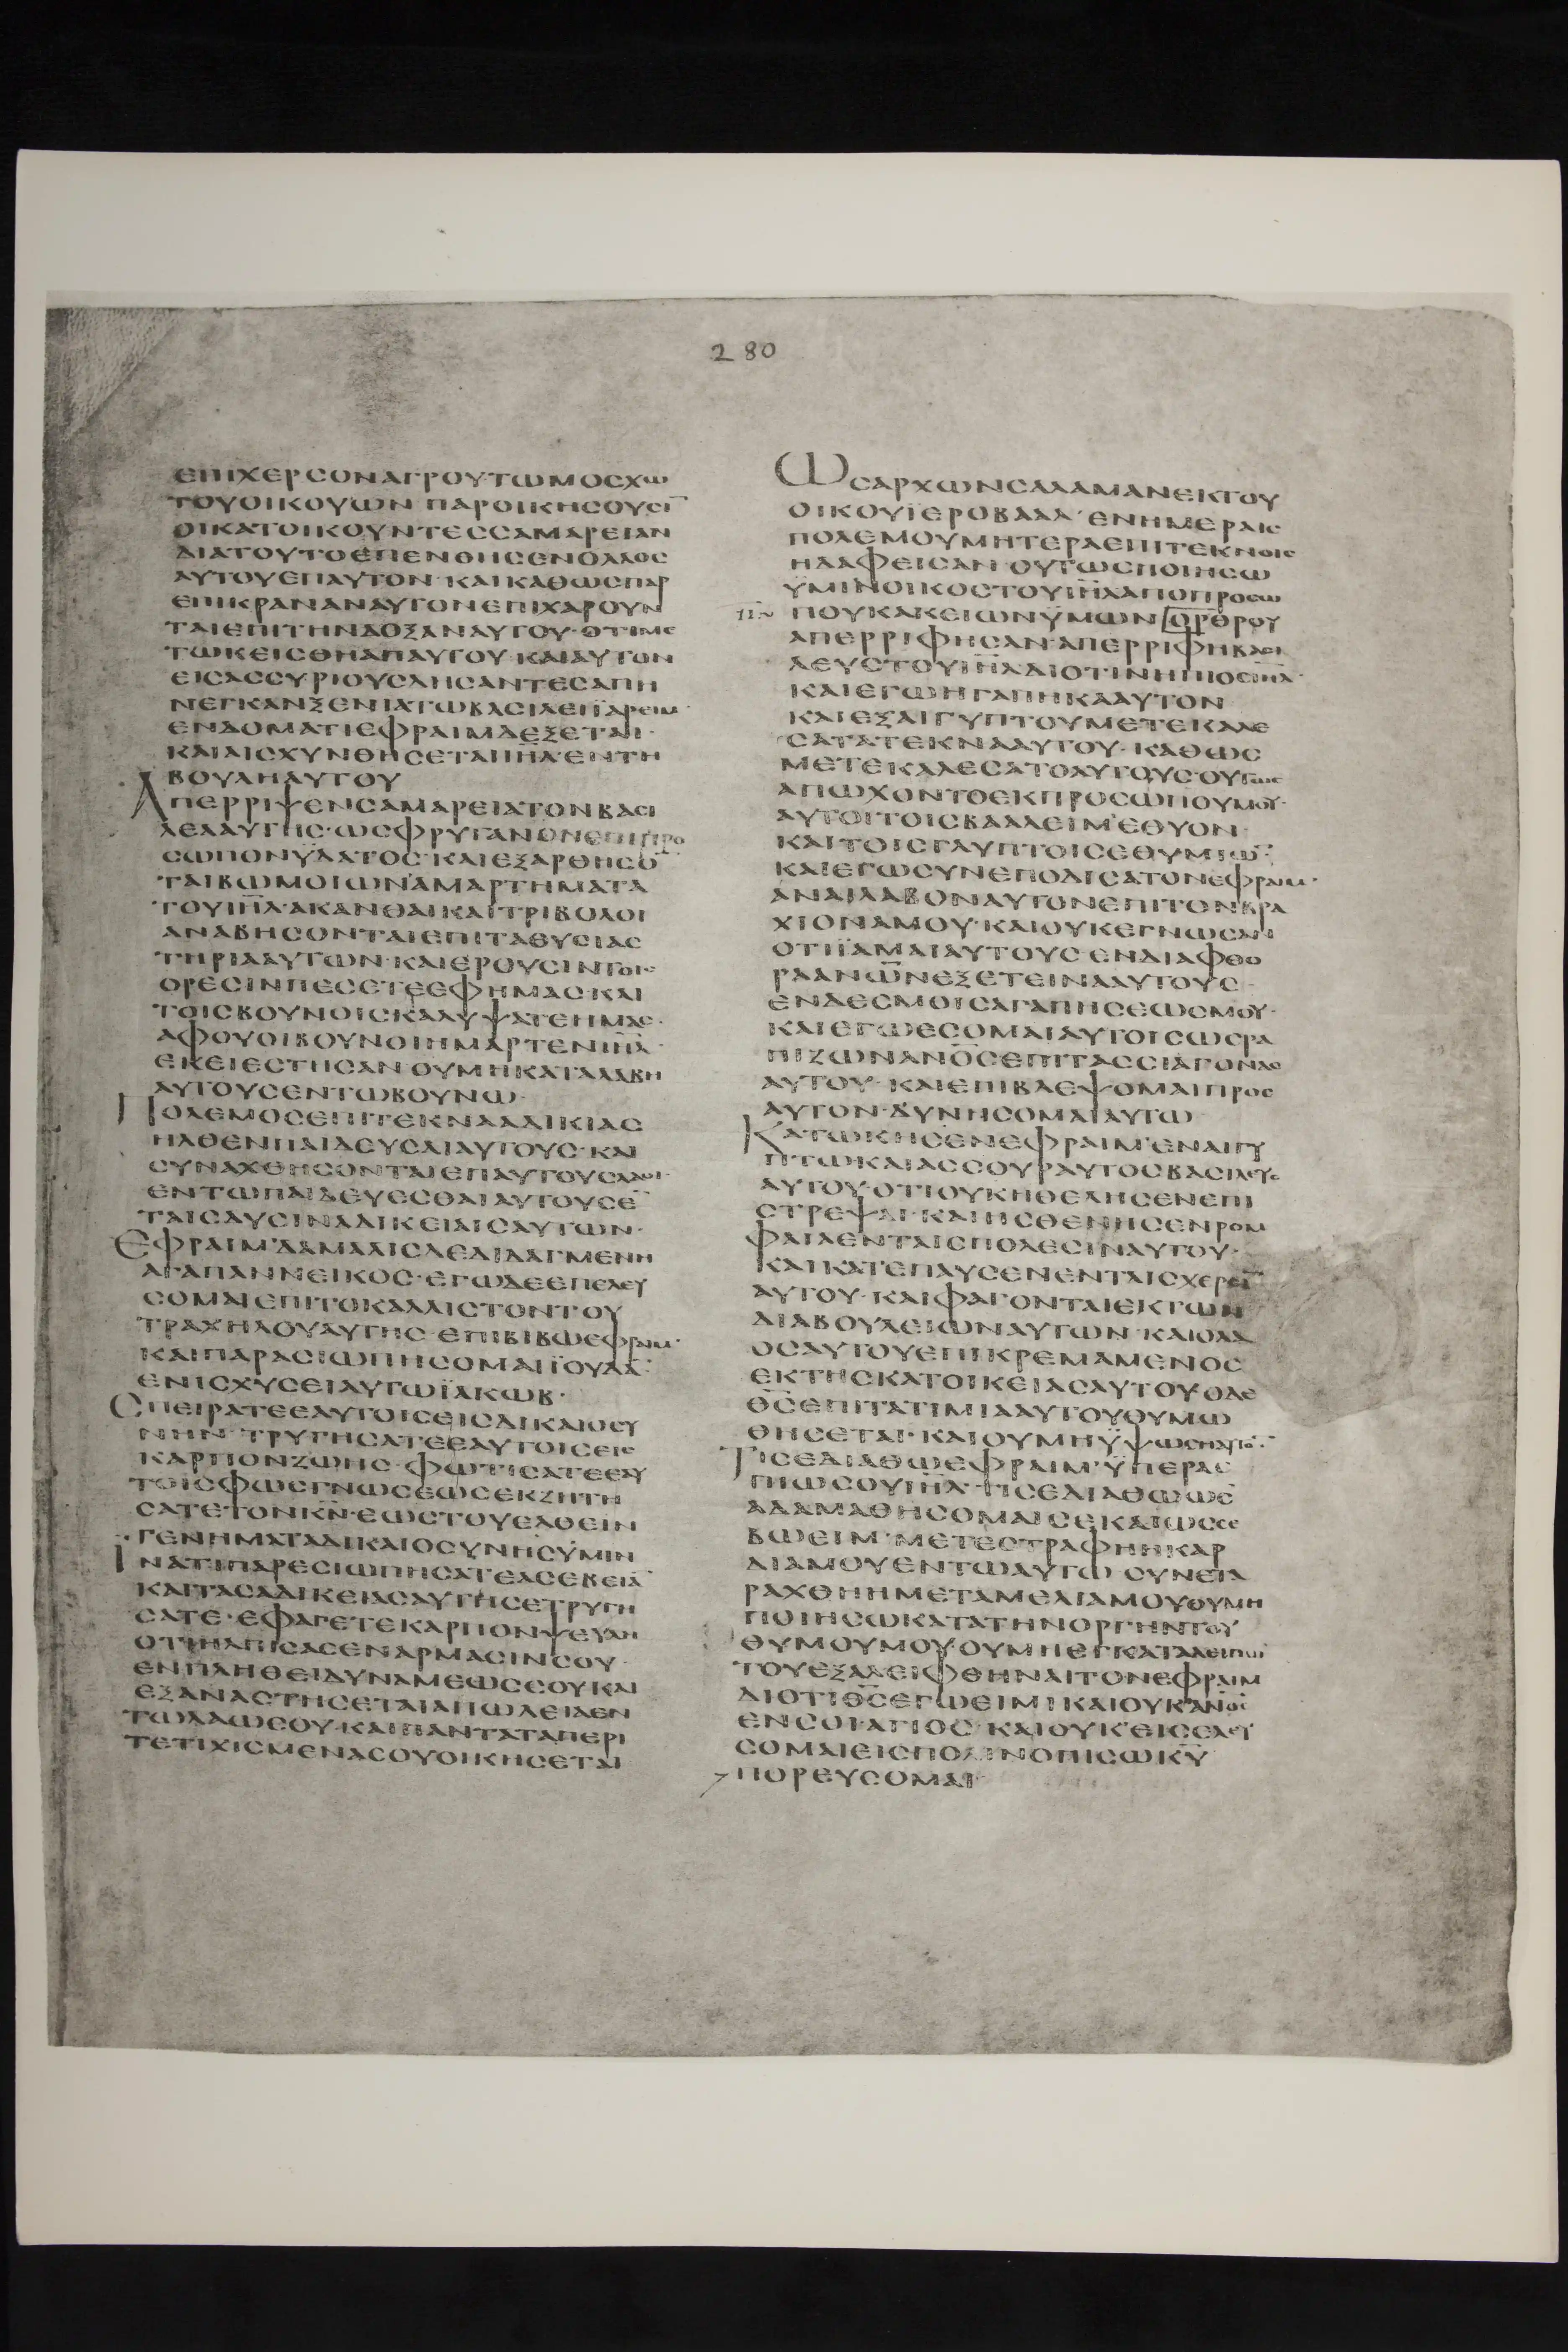 280
ΕΠΙΧΕΡΣΟΝΑΓΡΟΥ·ΤΩΜΟΣΧΩ
ΤΟΥΟΙΚΟΥΩΝ ΠΑΡΟΙΚΗΣΟΥΣΙ̅
ΟΙΚΑΤΟΙΚΟΥΝΤΕΣΣΑΜΑΡΕΙΑΝ
ΔΙΑΤΟΥΤΟΕΠΕΝΘΗΣΕΝΟΛΑΟΣ
ΑΥΤΟΥΕΠΑΥΤΟΝ·ΚΑΙΚΑΘΩΣΠΑΡ
ΕΠΙΚΡΑΝΑΝΑΥΤΟΝΕΠΙΧΑΡΟΥΝ
ΤΑΙΕΠΙΤΗΝΔΟΞΑΝΑΥΤΟΥ·ΟΤΙΜΕ
ΤΩΚΕΙΣΘΗΑΠΑΥΤΟΥ·ΚΑΙΑΥΤΟΝ
ΕΙΣΑΣΣΥΡΙΟΥΣΔΗΣΑΝΤΕΣΑΠΗ
ΝΕΓΚΑΝΞΕΝΙΑΤΩΒΑΣΙΛΕΙΪΑΡΕΙΜ·
ΕΝΔΟΜΑΤΙΕΦΡΑΙΜΔΕΞΕΤΑΙ·
ΚΑΙΑΙΣΧΥΝΘΗΣΕΤΑΙΙΗ̅Λ̅ΕΝΤΗ
ΒΟΥΛΗΑΥΤΟΥ
ΑΠΕΡΡΙΨΕΝΣΑΜΑΡΕΙΑΤΟΝΒΑΣΙ
ΛΕΑΑΥΤΗΣ·ΩΣΦΡΥΓΑΝΟΝΕΠΙΠΡΟ
ΣΩΠΟΝΫΔΑΤΟΣ·ΚΑΙΕΞΑΡΘΗΣΟ̅
ΤΑΙΒΩΜΟΙΩΝΑΜΑΡΤΗΜΑΤΑ
ΤΟΥΙΗ̅Λ̅·ΑΚΑΝΘΑΙΚΑΙΤΡΙΒΟΛΟΙ
ΑΝΑΒΗΣΟΝΤΑΙΕΠΙΤΑΘΥΣΙΑΣ
ΤΗΡΙΑΑΥΤΩΝ·ΚΑΙΕΡΟΥΣΙΝΤΟΙΣ
ΟΡΕΣΙΝΠΕΣΕΤΕΕΦΗΜΑΣ·ΚΑΙ
ΤΟΙΣΒΟΥΝΟΙΣΚΑΛΥΨΑΤΕΗΜΑΣ·
ΑΦΟΥΟΙΒΟΥΝΟΙΗΜΑΡΤΕΝΙΗ̅Λ̅·
ΕΚΕΙΕΣΤΗΣΑΝ·ΟΥΜΗΚΑΤΑΛΑΒΗ
ΑΥΤΟΥΣΕΝΤΩΒΟΥΝΩ·
ΠΟΛΕΜΟΣΕΠΙΤΕΚΝΑΑΔΙΚΙΑΣ
ΗΛΘΕΝΠΑΙΔΕΥΣΑΙΑΥΤΟΥΣ·ΚΑΙ
ΣΥΝΑΧΘΗΣΟΝΤΑΙΕΠΑΥΤΟΥΣΛΑΟΙ·
ΕΝΤΩΠΑΙΔΕΥΕΣΘΑΙΑΥΤΟΥΣΕ̅
ΤΑΙΣΔΥΣΙΝΑΔΙΚΕΙΑΙΣΑΥΤΩΝ·
ΕΦΡΑΙΜΔΑΜΑΛΙΣΔΕΔΙΔΑΓΜΕΝΗ
ΑΓΑΠΑΝΝΕΙΚΟΣ·ΕΓΩΔΕΕΠΕΛΕΥ
ΣΟΜΑΙΕΠΙΤΟΚΑΛΛΙΣΤΟΝΤΟΥ
ΤΡΑΧΗΛΟΥΑΥΤΗΣ·ΕΠΙΒΙΒΩΕΦΡΑΙΜ·
ΚΑΙΠΑΡΑΣΙΩΠΗΣΟΜΑΙΪΟΥΔΑ̅·
ΕΝΙΣΧΥΣΕΙΑΥΤΩΪΑΚΩΒ·
ΣΠΕΙΡΑΤΕΕΑΥΤΟΙΣΕΙΣΔΙΚΑΙΟΣΥ
ΝΗΝ·ΤΡΥΓΗΣΑΤΕΕΑΥΤΟΙΣΕΙΣ
ΚΑΡΠΟΝΖΩΗΣ·ΦΩΤΙΣΑΤΕΕΑΥ
ΤΟΙΣΦΩΣΓΝΩΣΕΩΣΕΚΖΗΤΗ
ΣΑΤΕΤΟΝΚ̅Ν̅·ΕΩΣΤΟΥΕΛΘΕΙΝ
ΓΕΝΗΜΑΤΑΔΙΚΑΙΟΣΥΝΗΣΫΜΙΝ
ΙΝΑΤΙΠΑΡΕΣΙΩΠΗΣΑΤΕΑΣΕΒΕΙΑ̅
ΚΑΙΤΑΣΑΔΙΚΕΙΑΣΑΥΤΗΣΕΤΡΥΓΗ
ΣΑΤΕ·ΕΦΑΓΕΤΕΚΑΡΠΟΝΨΕΥΔΗ
ΟΤΙΗΛΠΙΣΑΣΕΝΑΡΜΑΣΙΝΣΟΥ·
ΕΝΠΛΗΘΕΙΔΥΝΑΜΕΩΣΣΟΥΚΑΙ
ΕΞΑΝΑΣΤΗΣΕΤΑΙΑΠΩΛΕΙΑΕΝ
ΤΩΛΑΩΣΟΥ·ΚΑΙΠΑΝΤΑΤΑΠΕΡΙ
ΤΕΤΙΧΙΣΜΕΝΑΣΟΥΟΙΚΗΣΕΤΑΙ
ΩΣΑΡΧΩΝΣΑΛΑΜΑΝΕΚΤΟΥ
ΟΙΚΟΥΪΕΡΟΒΑΑΛ·ΕΝΗΜΕΡΑΙΣ
ΠΟΛΕΜΟΥΜΗΤΕΡΑΕΠΙΤΕΚΝΟΙΣ
ΗΔΑΦΕΙΣΑΝ·ΟΥΤΩΣΠΟΙΗΣΩ
ΫΜΙΝΟΙΚΟΣΤΟΥΙΗ̅Λ̅ΑΠΟΠΡΟΣΩ
ΠΟΥΚΑΚΕΙΩΝΫΜΩΝΟΡΘΡΟΥ
ΑΠΕΡΡΙΦΗΣΑΝ·ΑΠΕΡΡΙΦΗΒΑΣΙ
ΛΕΥΣΤΟΥΙΗ̅Λ̅ΔΙΟΤΙΝΗΠΙΟΣΙΗ̅Λ̅·
ΚΑΙΕΓΩΗΓΑΠΗΚΑΑΥΤΟΝ
ΚΑΙΕΞΑΙΓΥΠΤΟΥΜΕΤΕΚΑΛΕ
ΣΑΤΑΤΕΚΝΑΑΥΤΟΥ·ΚΑΘΩΣ
ΜΕΤΕΚΑΛΕΣΑΤΟΑΥΤΟΥΣ·ΟΥΤΩΣ
ΑΠΩΧΟΝΤΟΕΚΠΡΟΣΩΠΟΥΜΟΥ·
ΑΥΤΟΙΤΟΙΣΒΑΑΛΕΙΜΕΘΥΟΝ
ΚΑΙΤΟΙΣΓΛΥΠΤΟΙΣΕΘΥΜΙΩ̅·
ΚΑΙΕΓΩΣΥΝΕΠΟΔΙΣΑΤΟΝΕΦΡΑΙΜ·
ΑΝΑΙΛΑΒΟΝΑΥΤΟΝΕΠΙΤΟΝΒΡΑ
ΧΙΟΝΑΜΟΥ·ΚΑΙΟΥΚΕΓΝΩΣΑΝ
ΟΤΙΪΑΜΑΙΑΥΤΟΥΣ·ΕΝΔΙΑΦΘΟ
ΡΑΑΝΩ̅Ν̅ΕΞΕΤΕΙΝΑΑΥΤΟΥΣ·
ΕΝΔΕΣΜΟΙΣΑΓΑΠΗΣΕΩΣΜΟΥ·
ΚΑΙΕΓΩΕΣΟΜΑΙΑΥΤΟΙΣΩΣΡΑ
ΠΙΖΩΝΑΝΟ̅Σ̅ΕΠΙΤΑΣΣΙΑΓΟΝΑΣ
ΑΥΤΟΥ·ΚΑΙΕΠΙΒΛΕΨΟΜΑΙΠΡΟΣ
ΑΥΤΟΝ·ΔΥΝΗΣΟΜΑΙΑΥΤΩ
ΚΑΤΩΚΗΣΕΝΕΦΡΑΙΜΕΝΑΙΓΥ
ΠΤΩΚΑΙΑΣΣΟΥΡΑΥΤΟΣΒΑΣΙΛΕΥΣ
ΑΥΤΟΥ·ΟΤΙΟΥΚΗΘΕΛΗΣΕΝΕΠΙ
ΣΤΡΕΨΑΙ·ΚΑΙΗΣΘΕΝΗΣΕΝΡΟΜ
ΦΑΙΑΕΝΤΑΙΣΠΟΛΕΣΙΝΑΥΤΟΥ·
ΚΑΙΚΑΤΕΠΑΥΣΕΝΕΝΤΑΙΣΧΕΡΣΙ̅
ΑΥΤΟΥ·ΚΑΙΦΑΓΟΝΤΑΙΕΚΤΩΝ
ΔΙΑΒΟΥΛΕΙΩΝΑΥΤΩΝ·ΚΑΙΟΛΑ
ΟΣΑΥΤΟΥΕΠΙΚΡΕΜΑΜΕΝΟΣ
ΕΚΤΗΣΚΑΤΟΙΚΕΙΑΣΑΥΤΟΥ·ΟΔΕ
Θ̅Σ̅ΕΠΙΤΑΤΙΜΙΑΑΥΤΟΥΘΥΜΩ
ΘΗΣΕΤΑΙ·ΚΑΙΟΥΜΗΫΨΩΣΗΑΥΤΟ̅·
ΤΙΣΕΔΙΑΘΩΕΦΡΑΙΜ·ΫΠΕΡΑΣ
ΠΙΩΣΟΥΙΗ̅Λ̅·ΤΙΣΕΔΙΑΘΩΩΣ
ΑΔΑΜΑΘΗΣΟΜΑΙΣΕΚΑΙΩΣΣΕ
ΒΩΕΙΜ·ΜΕΤΕΣΤΡΑΦΗΗΚΑΡ
ΔΙΑΜΟΥΕΝΤΩΑΥΤΩ·ΣΥΝΕΤΑ
ΡΑΧΘΗΗΜΕΤΑΜΕΛΙΑΜΟΥΟΥΜΗ
ΠΟΙΗΣΩΚΑΤΑΤΗΝΟΡΓΗΝΤΟΥ
ΘΥΜΟΥΜΟΥ·ΟΥΜΗΕΓΚΑΤΑΛΕΙΠΩ
ΤΟΥΕΞΑΛΕΙΦΘΗΝΑΙΤΟΝΕΦΡΑΙΜ
ΔΙΟΤΙΘ̅Σ̅ΕΓΩΕΙΜΙΚΑΙΟΥΚΑΝΟ̅Σ̅
ΕΝΣΟΙΑΓΙΟΣ·ΚΑΙΟΥΚΕΙΣΕΛΕΥ
ΣΟΜΑΙΕΙΣΠΟΛΙΝΟΠΙΣΩΚ̅Υ̅
ΠΟΡΕΥΣΟΜΑΙ·